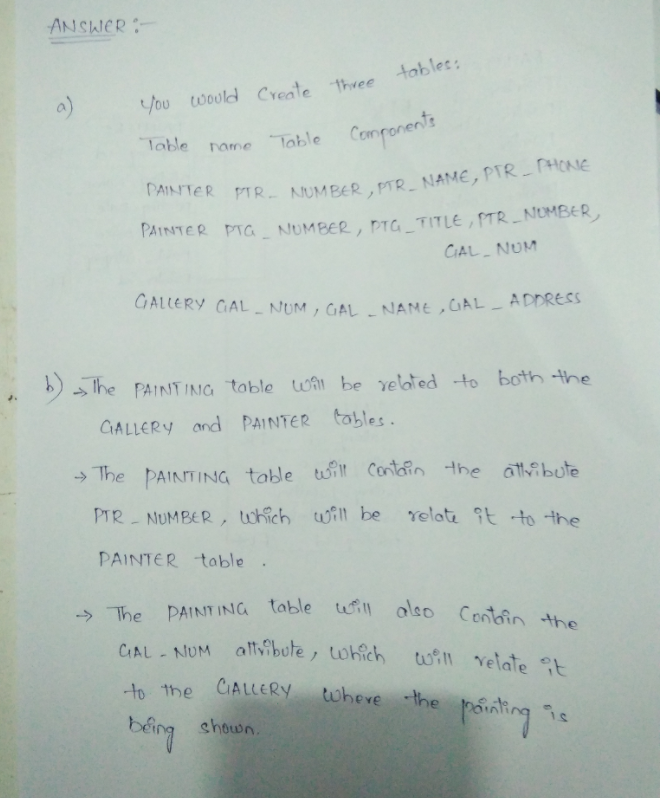 ANSWER :-
a) You would Create three tables:
Table name Table Components
PAINTER PTR_ NUMBER, PTR_ NAME, PTR_ PHONE
PAINTER PTG_ NUMBER, PTG_TITLE, PTR_NUMBER,
GAL_NUM
GALLERY GAL_NUM, GAL_NAME, GAL_ ADDRESS
b) → The PAINTING table will be related to both the
GALLERY and PAINTER tables.
→ The PAINTING table will Contain the attribute
PTR_NUMBER, which will be relate it to the
PAINTER table.
→ The PAINTING table will also Contain the
GAL-NUM attribute, which will relate it
to the GALLERY where the painting is
being shown.